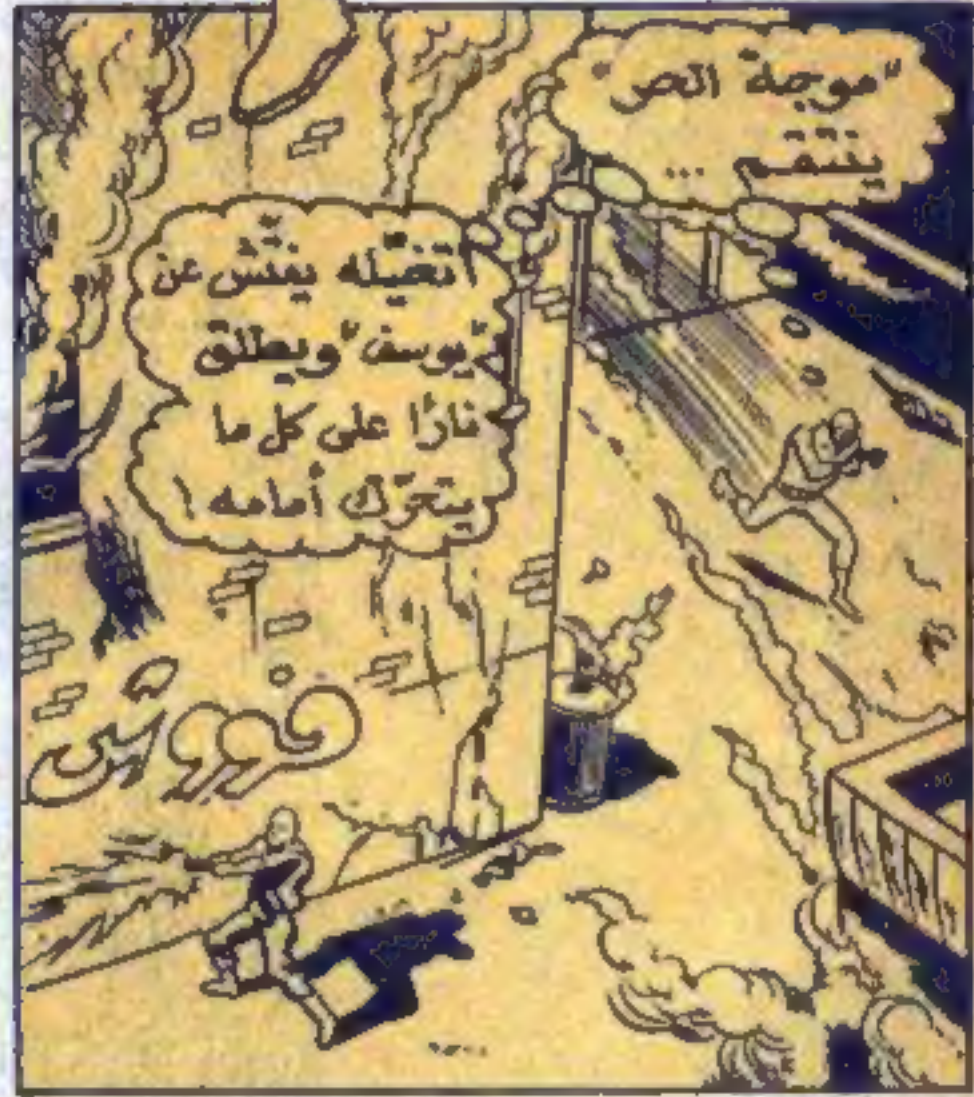 "موجة الحر"
ينتقم ...
أتخيّله يفتّش عن
"يوسف" ويطلق
نارًا على كل ما
يتحرّك أمامه !